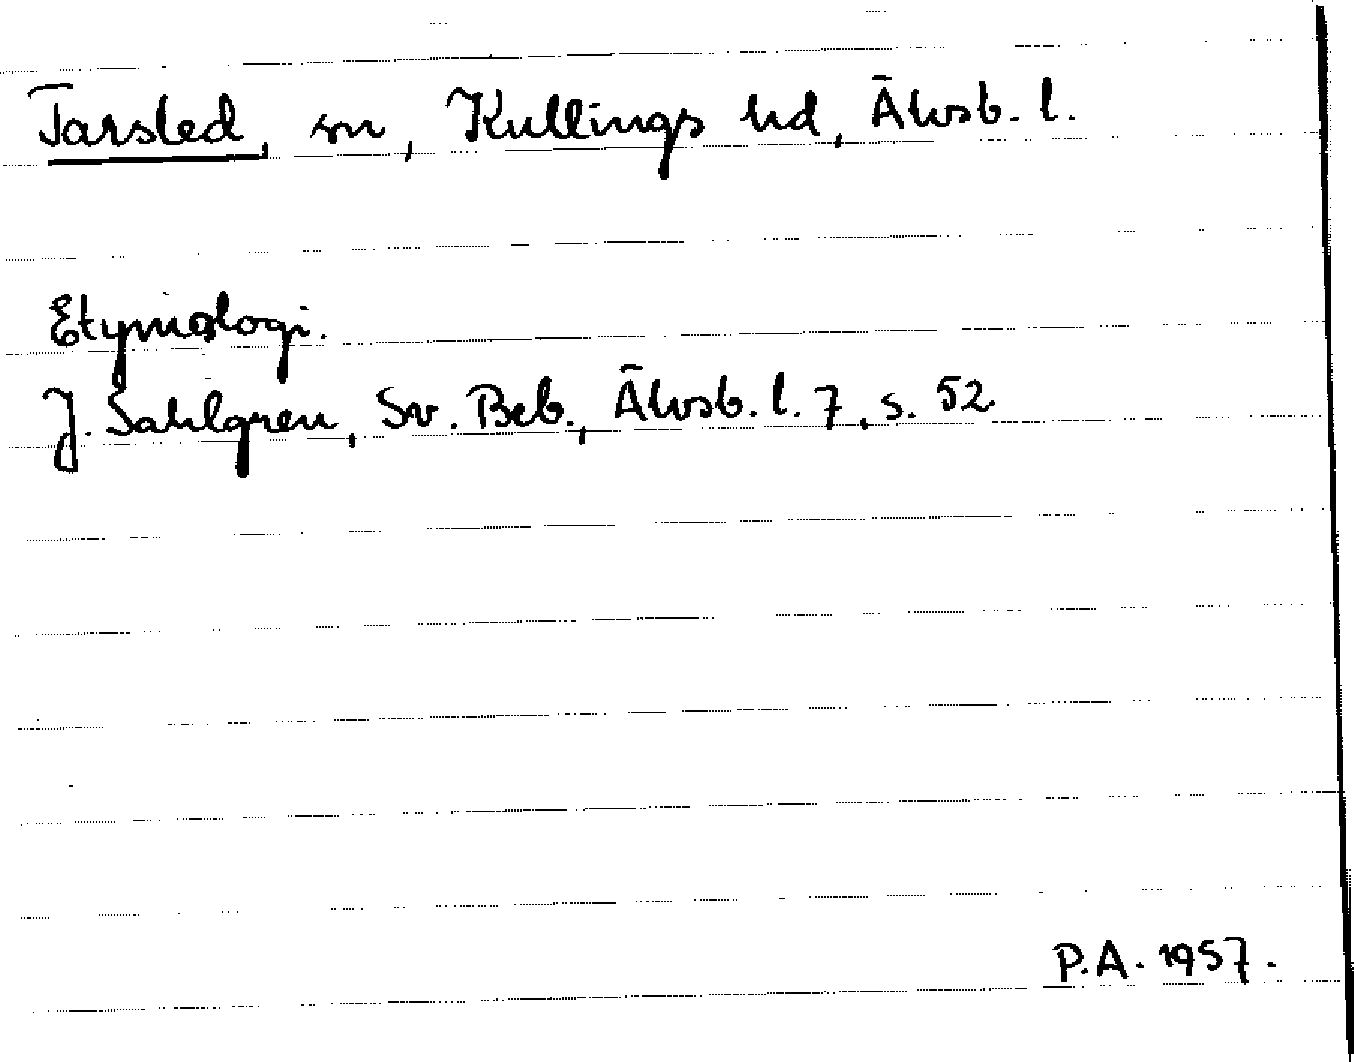 Tarsled, sn, Kullings hd, Älvsb. l.
Etymologi.
J. Sahlgren, Sv. Beb., Älvsb. l. 7, s. 52.
P.A. 1957.